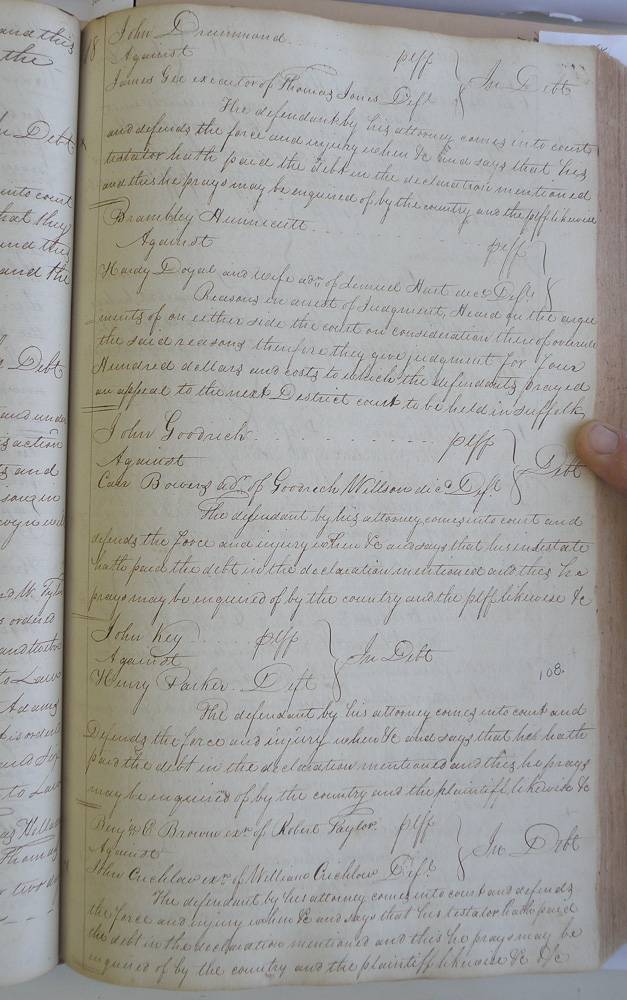 and this
the
18 John Drummond plff
Against } In Debt
James Gee executor of Thomas Jones Deft
The defendant by his attorney comes into court
and defends the force and injury when &c and says that his
testator hath paid the debt in the declaration mentioned
and this he prays may be enquired of by the country and the plff likewise
Brambley Hunnicutt
Against plff }
Hardy Doyal and wife adrx of Lemuel Hart decd Defts
Reasons in arrest of Judgment, Heard on the argu
ments of on either side the court on consideration thereof overrule
the said reasons therefore they give judgment for four
Hundred dollars and costs to which the defendants prayed
an appeal to the next District court to be held in Suffolk
John Goodrich plff
Against } Debt
Carr Bowers adr. of Goodrich Willson decd Deft
The defendant by his attorney comes into court and
defends the force and injury when &c and says that his intestate
hath paid the debt in the declaration mentioned and this he
prays may be enquired of by the country and the plff likewise &c
John Key plff
Against } In Debt
Henry Parker Deft
108.
The defendant by his attorney comes into court and
Defends the force and injury when &c and says that he hath
paid the debt in the declaration mentioned and this he prays
may be enquired of by the country and the plaintiff likewise &c
Benja E. Brown exr. of Robert Taylor plff
Against } In Debt
John Crichlow exr. of William Crichlow Deft.
The defendant by his attorney comes into court and defends
the force and injury when &c and says that his testator hath paid
the debt in the declaration mentioned and this he prays may be
enquired of by the country and the plaintiff likewise &c &c